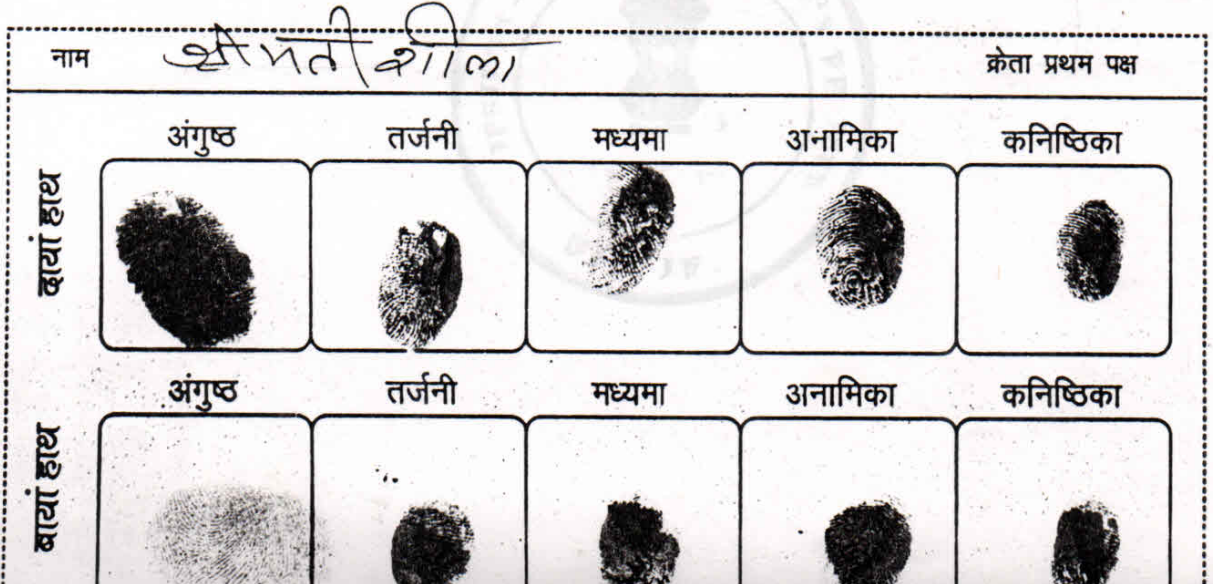 नाम श्रीमती शीला क्रेता प्रथम पक्ष
अंगुष्ठ तर्जनी मध्यमा अनामिका कनिष्ठिका
दायां हाथ
अंगुष्ठ तर्जनी मध्यमा अनामिका कनिष्ठिका
बायां हाथ